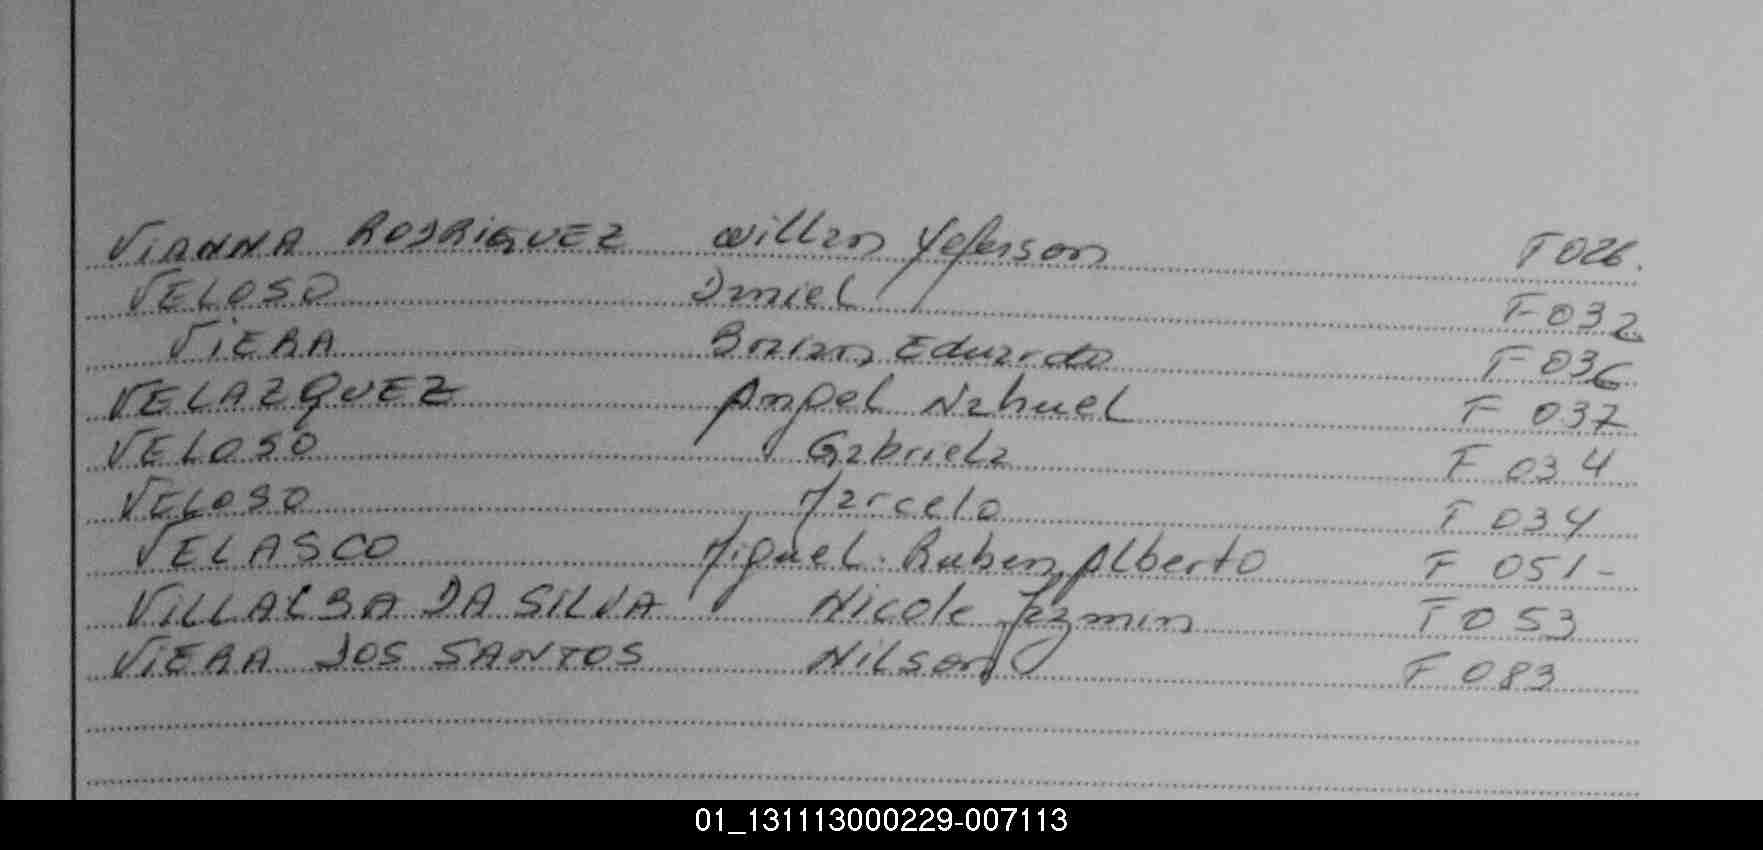 VIANNA RODRIGUEZ Willian Yeferson F 026.
VELOSO Daniel F 032
VIERA Brian Eduardo F 036
VELAZQUEZ Angel Nahuel F 037
VELOSO Gabriela F 034
VELOSO Marcelo F 034
VELASCO Miguel Ruben Alberto F 051-
VILLALBA DA SILVA Nicole Jazmin F 053
VIERA DOS SANTOS Nilson F 083
01_131113000229-007113